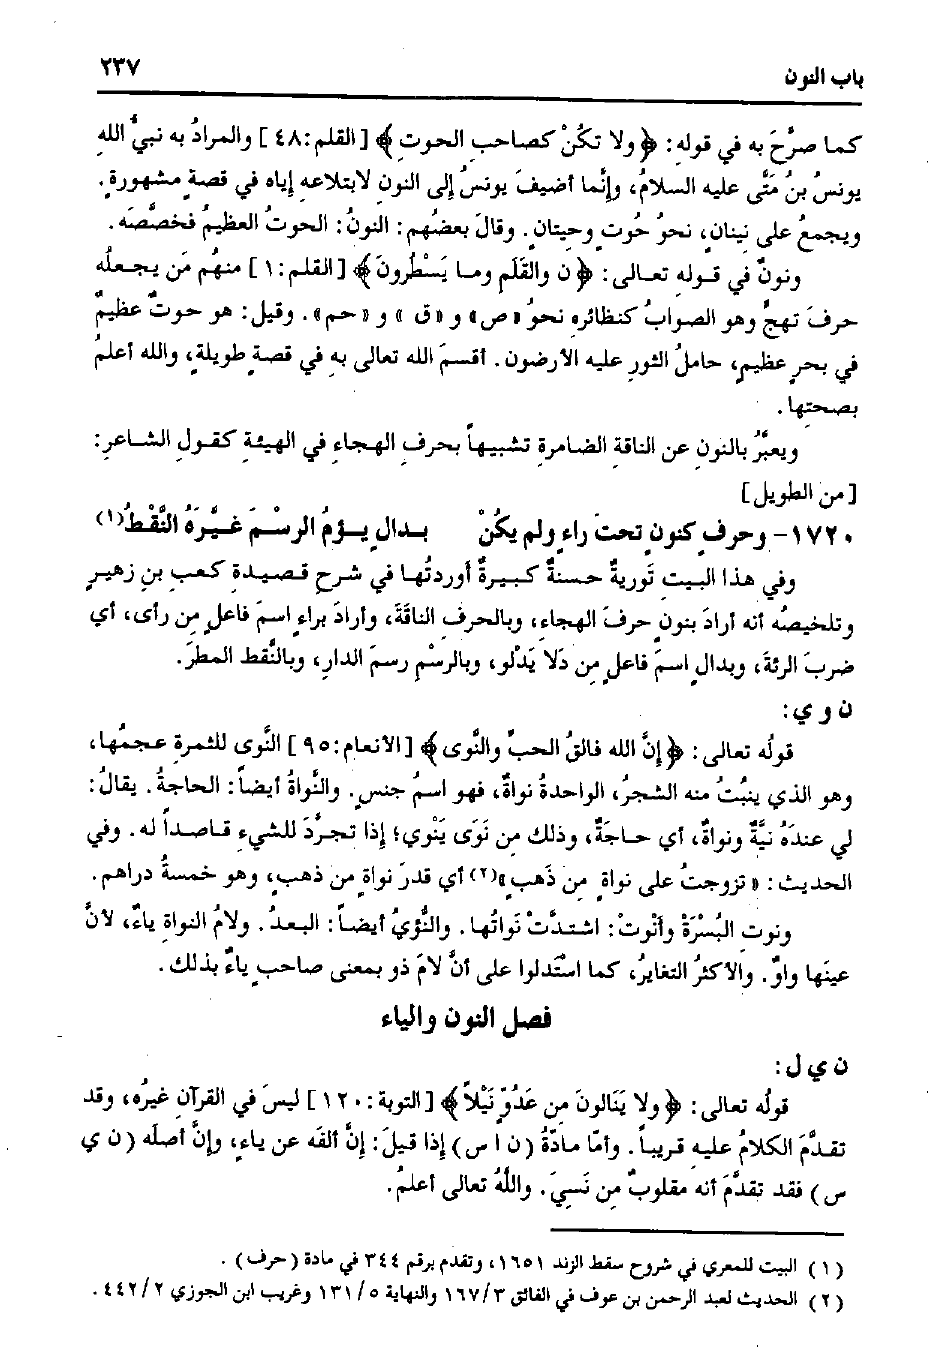 باب النون ٢٣٧
كما صرَّحَ به في قوله: ﴿ولا تكنْ كصاحبِ الحوتِ﴾ [القلم:٤٨] والمرادُ به نبيُّ اللهِ
يونسُ بنُ مَتَّى عليه السلامُ، وإنَّما أضيفَ يونسُ إلى النون لابتلاعه إياه في قصةٍ مشهورةٍ.
ويجمعُ على نِينانٍ، نحوُ حُوتٍ وحيتان. وقالَ بعضُهم: النونُ: الحوتُ العظيمُ فخصَّصَه.
ونونٌ في قـوله تعـالى: ﴿ن والقَلَمِ ومـا يَسْطُرونَ﴾ [القلم:١] منهُم مَن يجـعلُه
حرفَ تهجٍّ وهو الصوابُ كنظائره نحوُ «ص» و «ق» و «حم». وقيل: هو حوتٌ عظيمٌ
في بحرٍ عظيمٍ، حاملُ الثورِ عليه الأرضون. أقسمَ الله تعالى به في قصةٍ طويلةٍ، والله أعلمُ
بصحتها.
ويعبَّرُ بالنونِ عن الناقةِ الضامرةِ تشبيهاً بحرفِ الهجاءِ في الهيئةِ كقـولِ الشـاعرِ:
[من الطويل]
١٧٢٠- وحرفٍ كنونٍ تحتَ راءٍ ولم يكُنْ بـدالٍ يـؤمُ الرسْـمَ غـيَّرَهُ النَّقْطُ(١)
وفي هـذا البـيتِ تَوريةٌ حـسنةٌ كـبيرةٌ أوردتُهـا في شرحِ قـصيـدةِ كـعبِ بنِ زهيـرٍ
وتلخيصُه أنه أرادَ بنونٍ حرفَ الهجاءِ، وبالحرفِ الناقَةَ، وأرادَ براءٍ اسمَ فاعلٍ مِن رأى، أي
ضربَ الرئةَ، وبدالٍ اسمَ فاعلٍ مِن دَلا يَدْلو، وبالرسْمِ رسمَ الدارِ، وبالنُّقط المطرَ.
ن و ي:
قولُه تعالى: ﴿إنَّ الله فالقُ الحبِّ والنَّوى﴾ [الأنعام:٩٥] النَّوى للثمرةِ عجمُها،
وهو الذي ينبُتُ منه الشجرُ، الواحدةُ نواةٌ، فهو اسمُ جنسٍ. والنَّواةُ أيضاً: الحاجةُ. يقالُ:
لي عندَهُ نيَّةٌ ونواةٌ، أي حـاجَةٌ، وذلك مِن نَوَى يَنْوي؛ إذا تجـرَّدَ للشيءِ قـاصـداً له. وفي
الحديث: «تزوجتُ على نواةٍ مِن ذَهبٍ»(٢) أي قدرَ نواةٍ من ذهبٍ، وهو خمسةُ دراهم.
ونوت البُسْرَةُ وأنْوتْ: اشتدَّتْ نَواتُها. والنُّؤيُ أيضـاً: البـعدُ. ولامُ النواةِ ياءٌ، لأنَّ
عينَها واوٌ. والأكثرُ التغايرُ، كما استُدلوا على أنَّ لامَ ذو بمعنى صاحبٍ ياءٌ بذلك.
فصل النون والياء
ن ي ل:
قولُه تعالى: ﴿ولا يَنَالونَ مِن عَدُوٍّ نَيْلاً﴾ [التوبة:١٢٠] ليسَ في القرآنِ غيرُه، وقد
تقـدَّمَ الكلامُ عليـه قـريبـاً. وأمّا مـادّةُ (ن ا س) إذا قيلَ: إنَّ ألفَه عن ياءٍ، وإنَّ أصلَه (ن ي
س) فقد تقدَّمَ أنه مقلوبٌ مِن نَسيَ. واللَّهُ تعالى أعلمُ.
(١) البيت للمعري في شروح سقط الزند ١٦٥١، وتقدم برقم ٣٤٤ في مادة (حرف).
(٢) الحديث لعبد الرحمن بن عوف في الفائق ١٦٧/٣ والنهاية ١٣١/٥ وغريب ابن الجوزي ٤٤٢/٢.